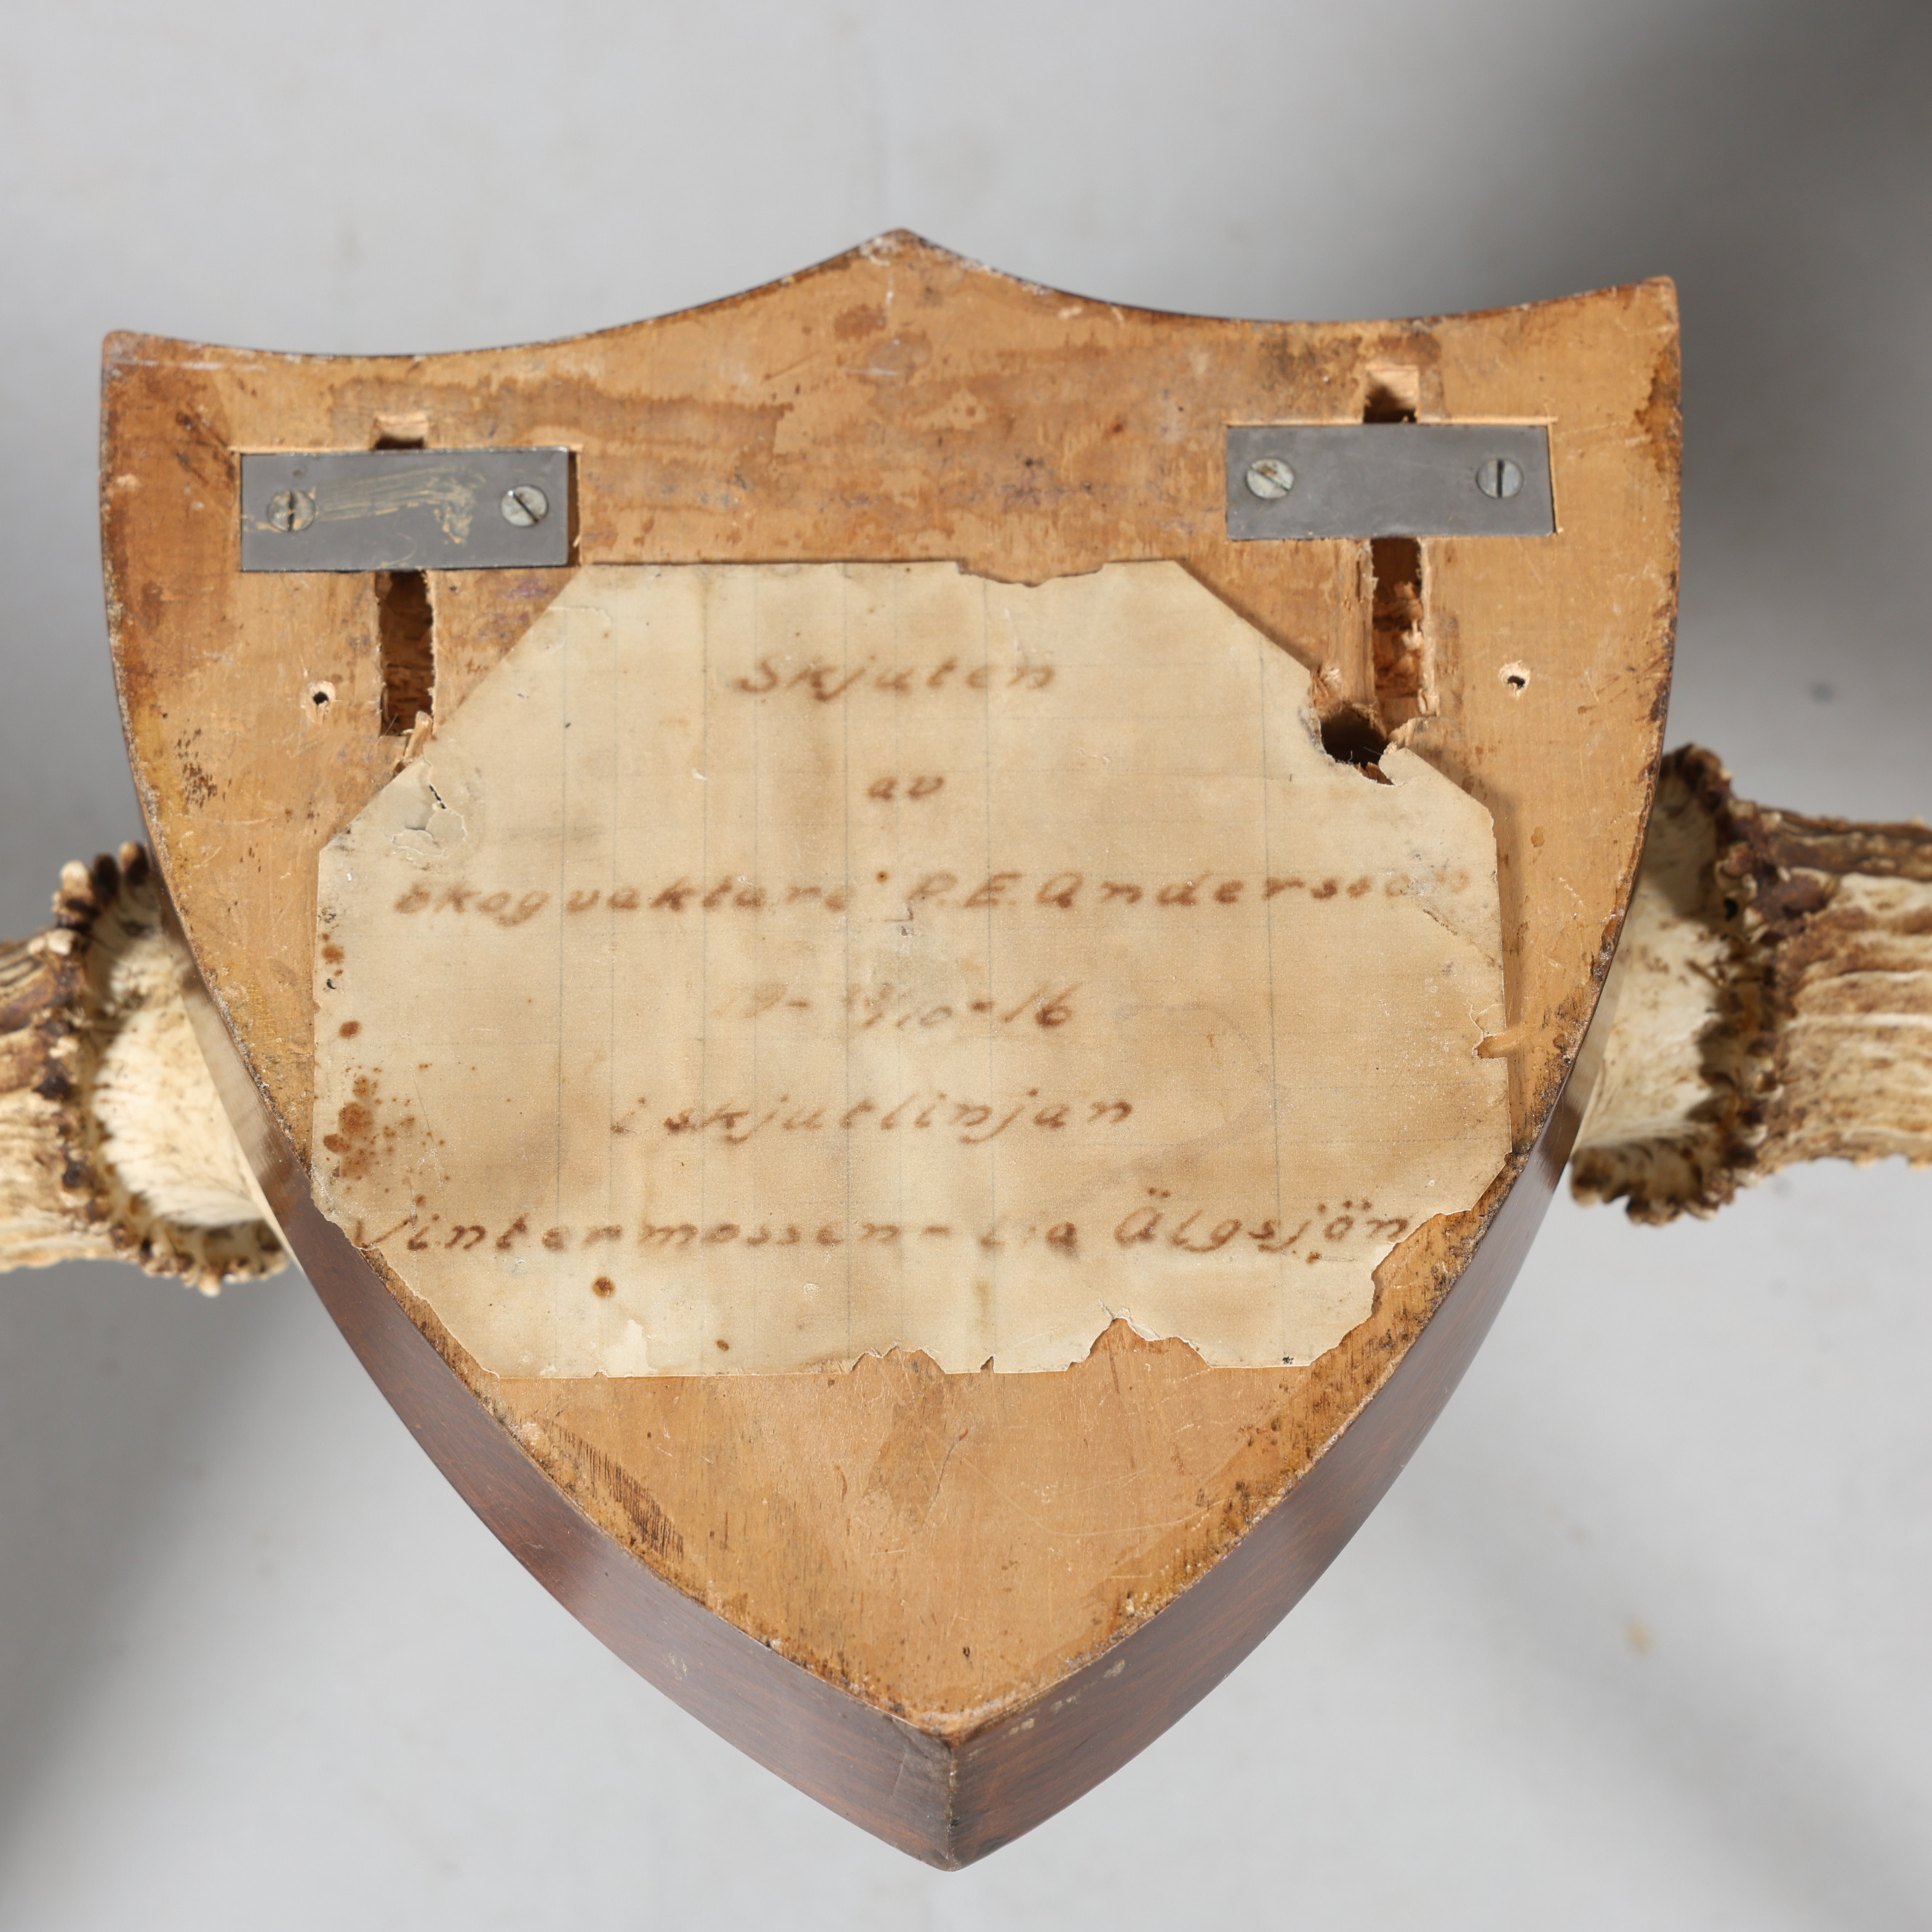 Skjuten
av
Skogvaktare P.E. Andersson
19- /10 -16
i skjutlinjan
Vintermossen - Lia Älgsjön